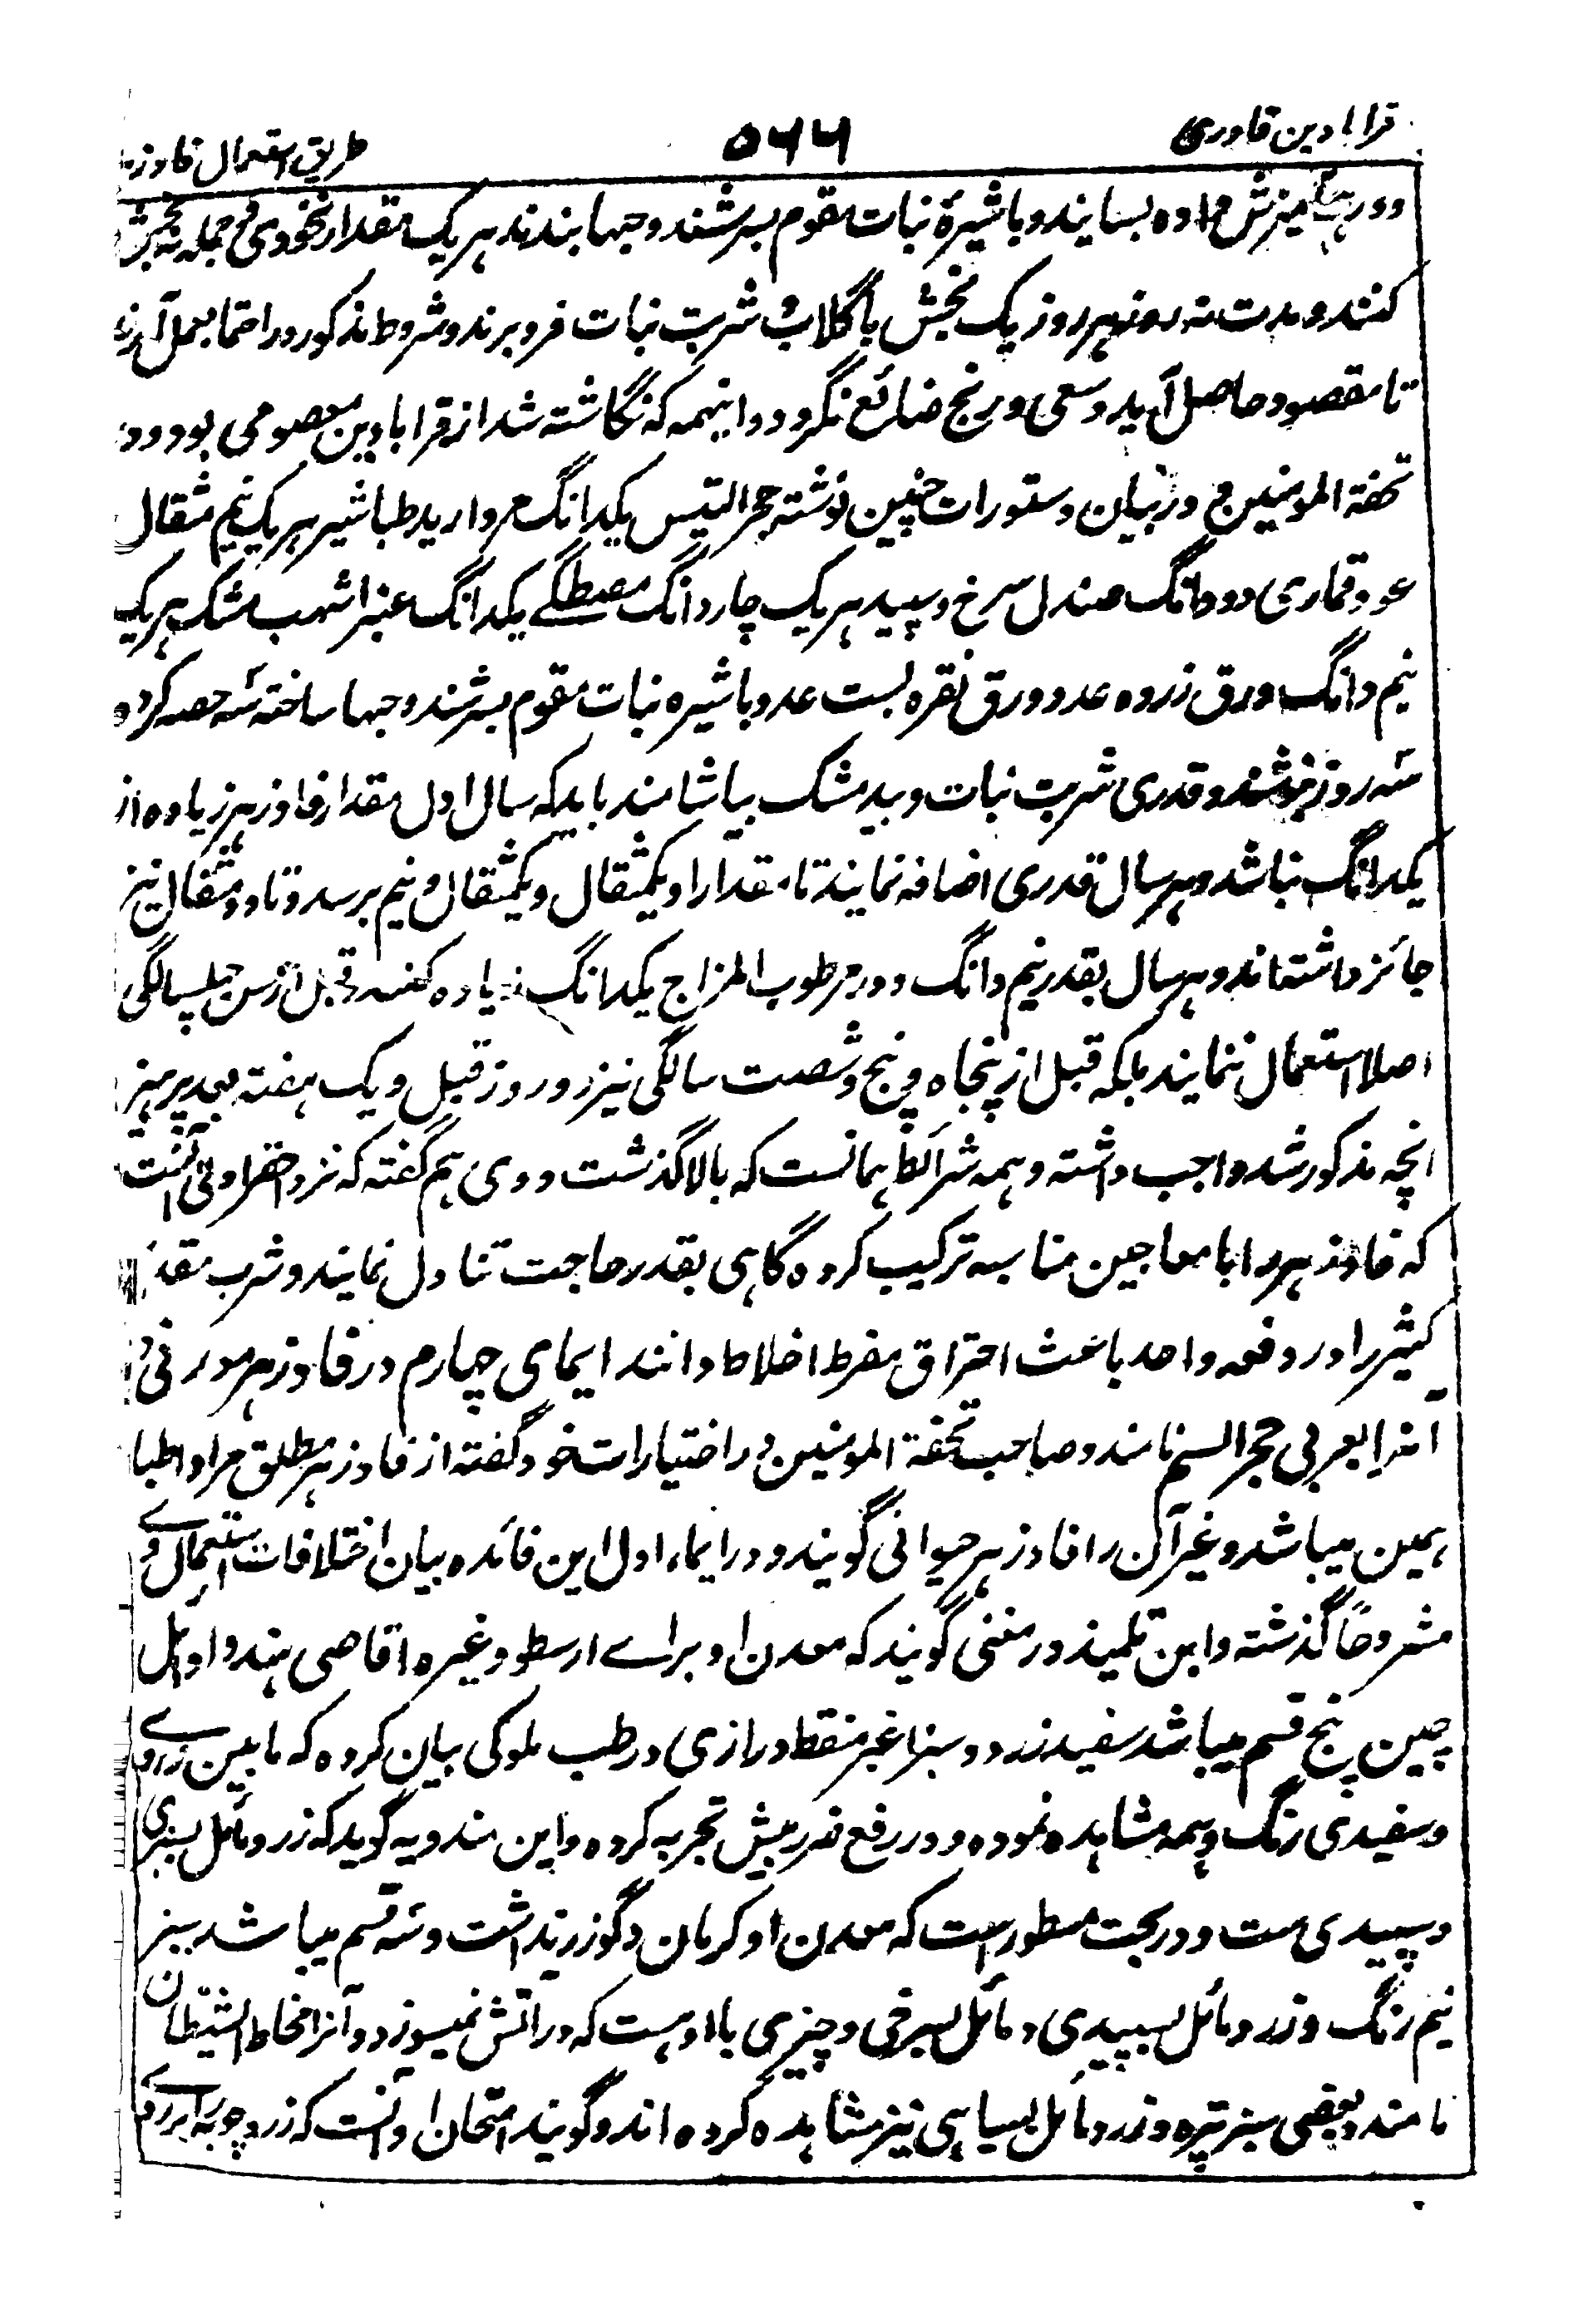 قرابادین قادری
۵۶۶
طریق استعمال فادزہر
و در آمیزش داده بسایند و با شیرۂ نبات مقوم بسرشند و حبها بندند هر یک مقدار نخودی و جمله نه بخش
کنند و مدت نه روز هر روز یک بخش با گلاب و شربت نبات فرو برند و شروط مذکوره را حتما بعمل آرند
تا مقصود حاصل آید و سعی و رنج ضائع نگردد و اینهمه که نگاشته شد از قرابادین معصومی بود و در
تحفة المومنین در بیان دستورات چنین نوشته حجر التیس یکدانگ مروارید طباشیر هر یک نیم مثقال
عود قماری دو دانگ صندل سرخ و سپید هر یک چار دانگ مصطگے یکدانگ عنبر اشهب مشک هر یک
نیم دانگ ورق زر ده عدد ورق نقره بست عدد با شیره نبات مقوم بسرشند و حبها ساخته سه حصه کرده
سه روز بنوشند و قدری شربت نبات و بید مشک بیاشامند باید که سال اول مقدار فادزهر زیاده از
یکدانگ نباشد و هر سال قدری اضافه نمایند تا مقدار او یکمثقال و یکمثقال و نیم برسد و تا دو مثقال نیز
جائز داشته اند و هر سال بقدر نیم دانگ و در مرطوب المزاج یکدانگ زیاده کنند و قبل از سن چهلسالگی
اصلا استعمال ننمایند بلکه قبل از پنجاه و پنج و شصت سالگی نیز و روز قبل و یک هفته بعد پرهیز
انچه مذکور شد واجب داشته و همه شرائط همانست که بالا گذشت و وی هم گفته که نزد احقر اوتی آنست
که فادزهر را با معاجین مناسبه ترکیب کرده گاهی بقدر حاجت تناول نمایند و شرب مقدار
کثیر را در دفعه واحد باعث احتراق مفرط اخلاط دانند ایمای چهارم در فادزهر معدنی و
آنرا بعربی حجر السم نامند و صاحب تحفة المومنین در اختیارات خود گفته از فادزهر مطلق مراد اطبا
همین میباشد و غیر آن را فادزهر حیوانی گویند و در ایماء اول این فائده بیان اختلافات استعمالے و
مشروحاً گذشته و ابن تلمیذ در مغنی گویند که معدن او براے ارسطو و غیره اقاصی هند و اوائل
چین پنج قسم میباشد سفید زرد و سبز اغبر منقط و رازی در طب ملوکی بیان کرده که مابین زردے
و سفیدی رنگ وسمه مشاهده نموده و در رفع ضرر بیش تجربه کرده و ابن مندویه گوید که زرد مائل بسبزی
و سپیدی ست و در بحت مسطور است که معدن او کرمان و گوز زرند است و سه قسم میباشد سبز
نیم رنگ و زرد مائل بسپیدی و مائل بسرخی و چیزی با اوست که در آتش نمیسوزد و آنرا مخاط الشیطان
نامند و بعضی سبز تیره و زرد مائل بسیاهی نیز مشاهده کرده اند و گویند امتحان او آنست که زرد چوبه را بر روے